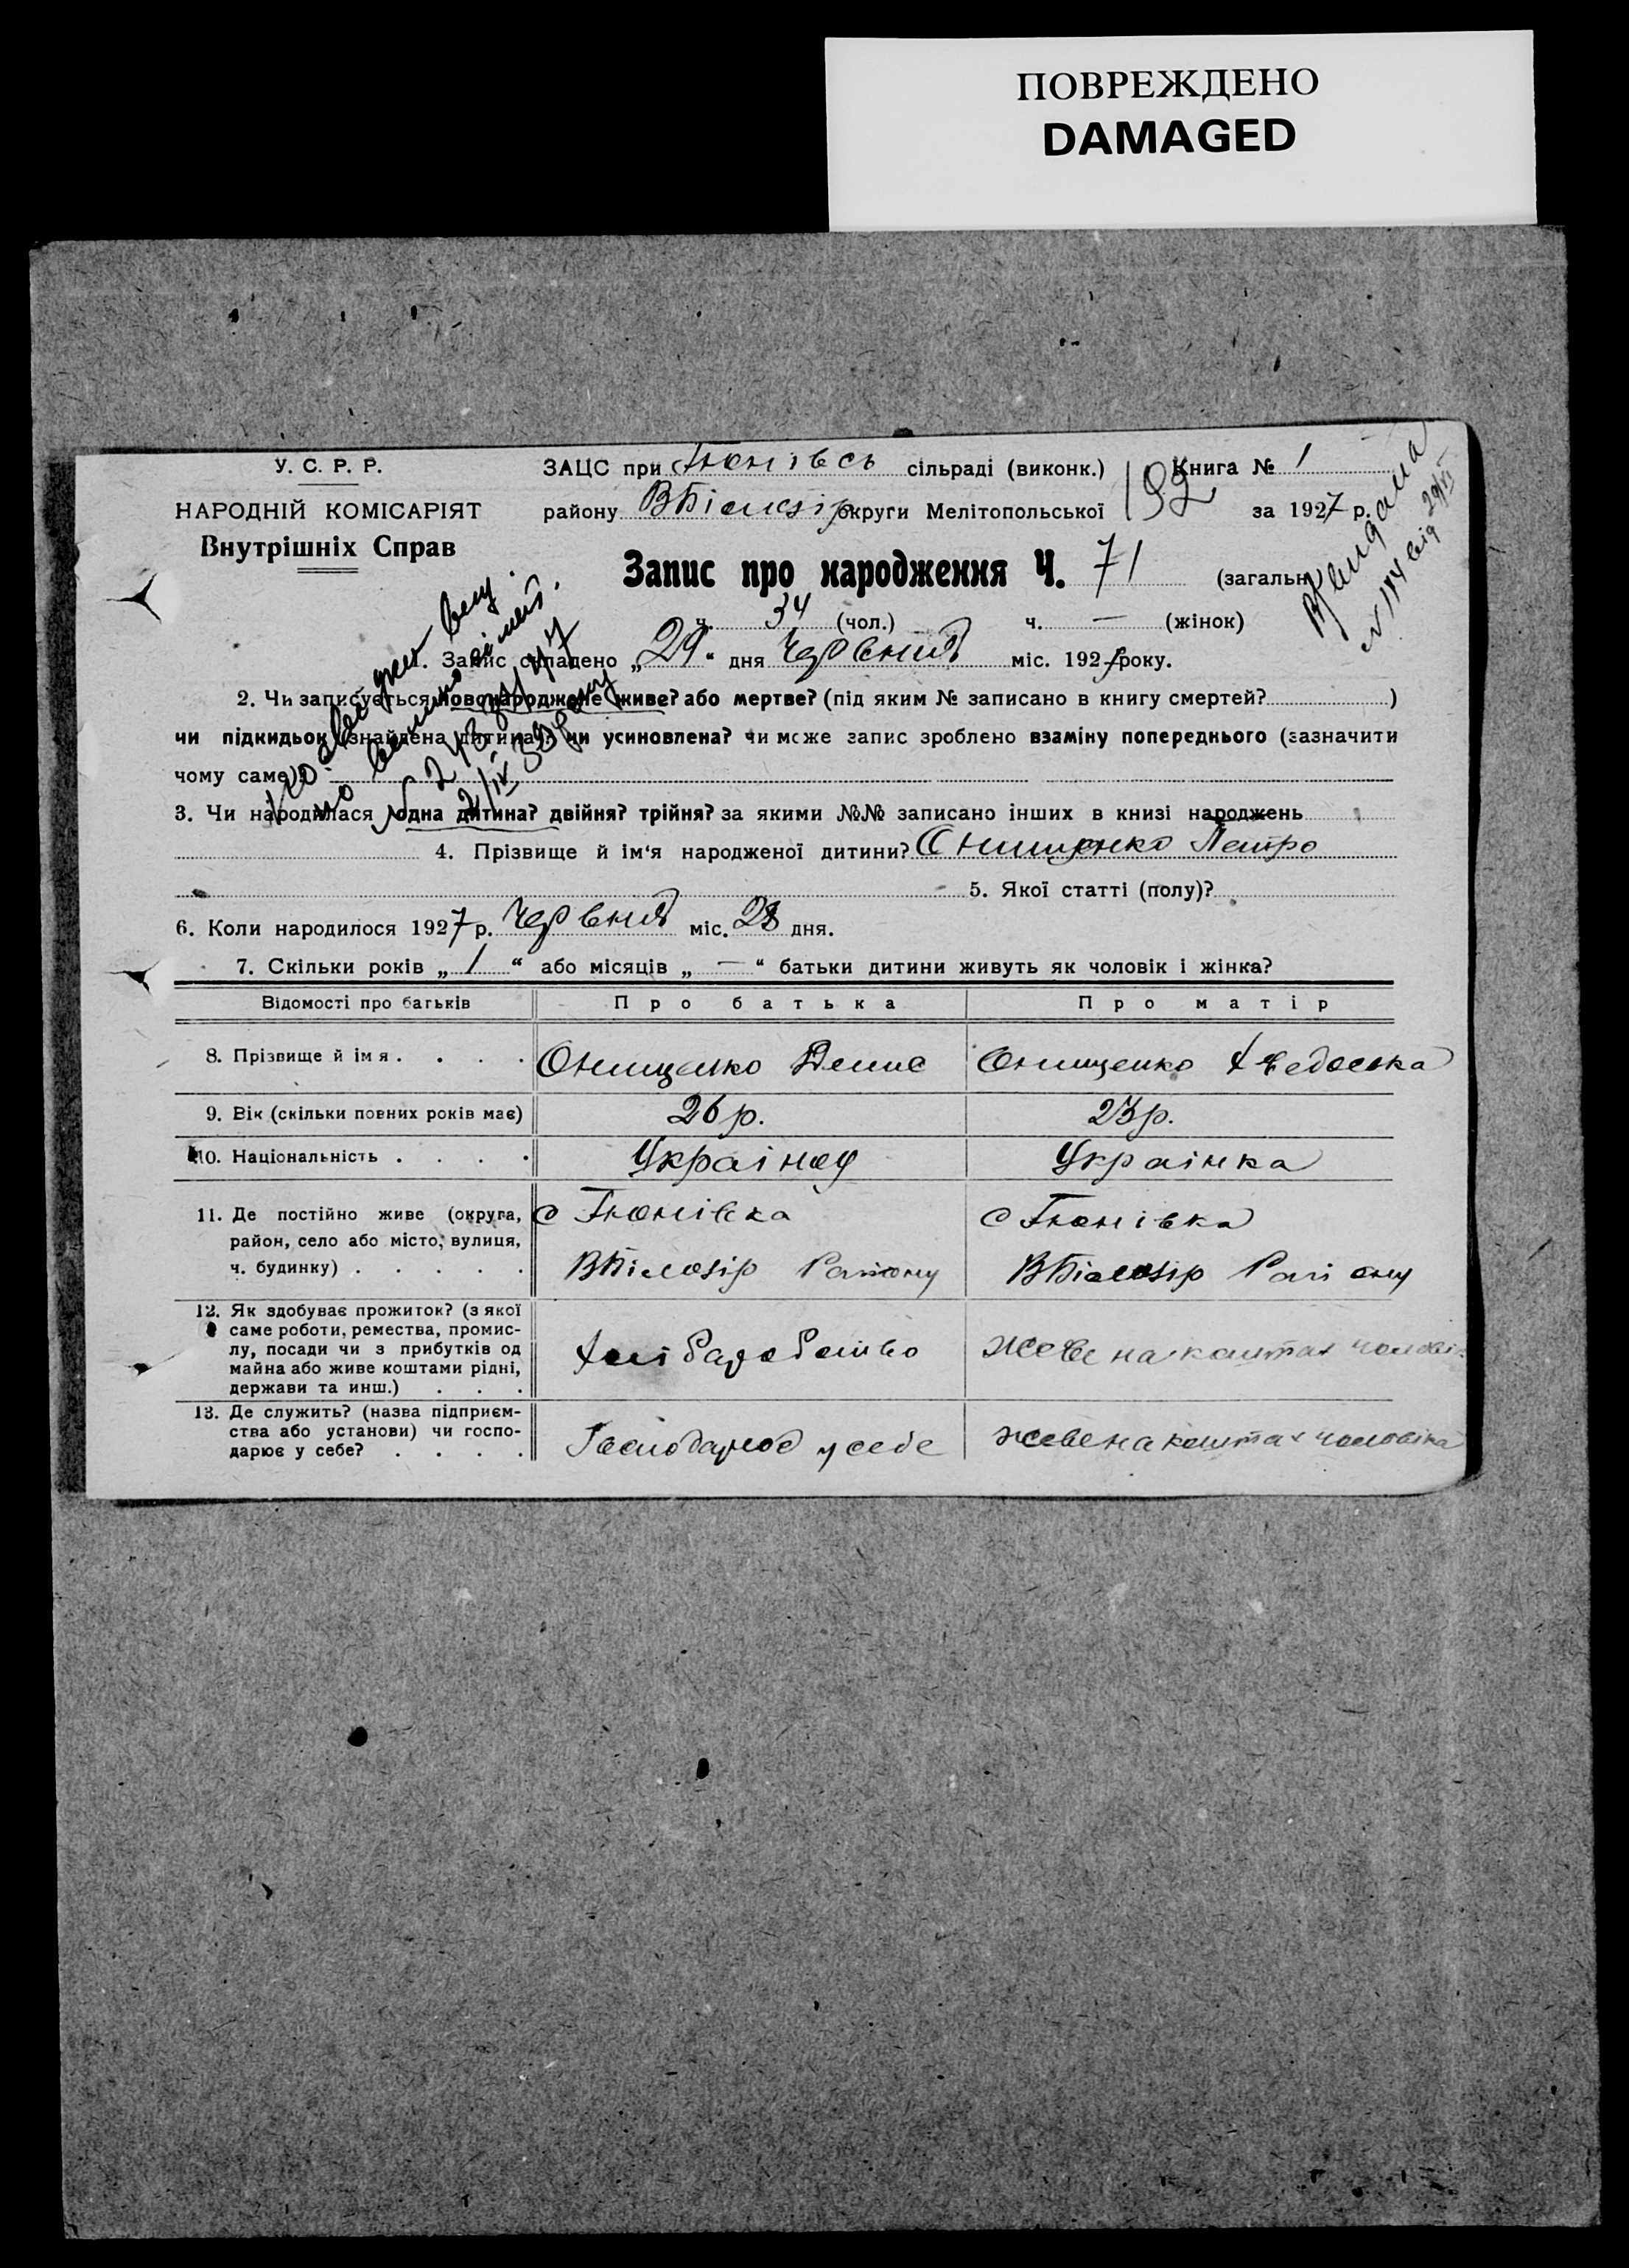 ПОВРЕЖДЕНО
DAMAGED
У. С. Р. Р.
НАРОДНІЙ КОМІСАРІЯТ
Внутрішніх Справ
ЗАЦС при Тюнівсь сільраді (виконк.) Книга № 1
району ВБілозір округи Мелітопольської 192 за 1927 р.
Запис про народження Ч. 71 (загальн
ч. 34 (чол.) ч. — (жінок)
Видана
1. Запис складено „29“ дня Червня міс. 1927 року.
2. Чи записується новонароджене живе? або мертве? (під яким № записано в книгу смертей? )
чи підкидьок (знайдена дитина)? чи усиновлена? чи може запис зроблено взаміну попереднього (зазначити
чому саме)?
3. Чи народилася одна дитина? двійня? трійня? за якими №№ записано інших в книзі народжень
4. Прізвище й ім‘я народженої дитини? Онищенко Петро
5. Якої статті (полу)?
6. Коли народилося 1927 р. Червня міс. 28 дня.
7. Скільки років „ 1 “ або місяців „ — “ батьки дитини живуть як чоловік і жінка?
Відомості про батьків Про батька Про матір
8. Прізвище й імя . . . . Онищенко Денис Онищенко Хведоська
9. Вік (скільки повних років має) 26 р. 23 р.
10. Національність . . . . Українец Українка
11. Де постійно живе (округа, район, село або місто, вулиця, ч. будинку) . . . . . с Тюнівка ВБілозір Району с Тюнівка ВБілозір Району
12. Як здобуває прожиток? (з якої саме роботи, ремества, промислу, посади чи з прибутків од майна або живе коштами рідні, держави та инш.) . . . Хліборобство живе на коштах чоловіка
13. Де служить? (назва підприємства або установи) чи господарює у себе? . . . . Господарює у себе живе на коштах чоловіка